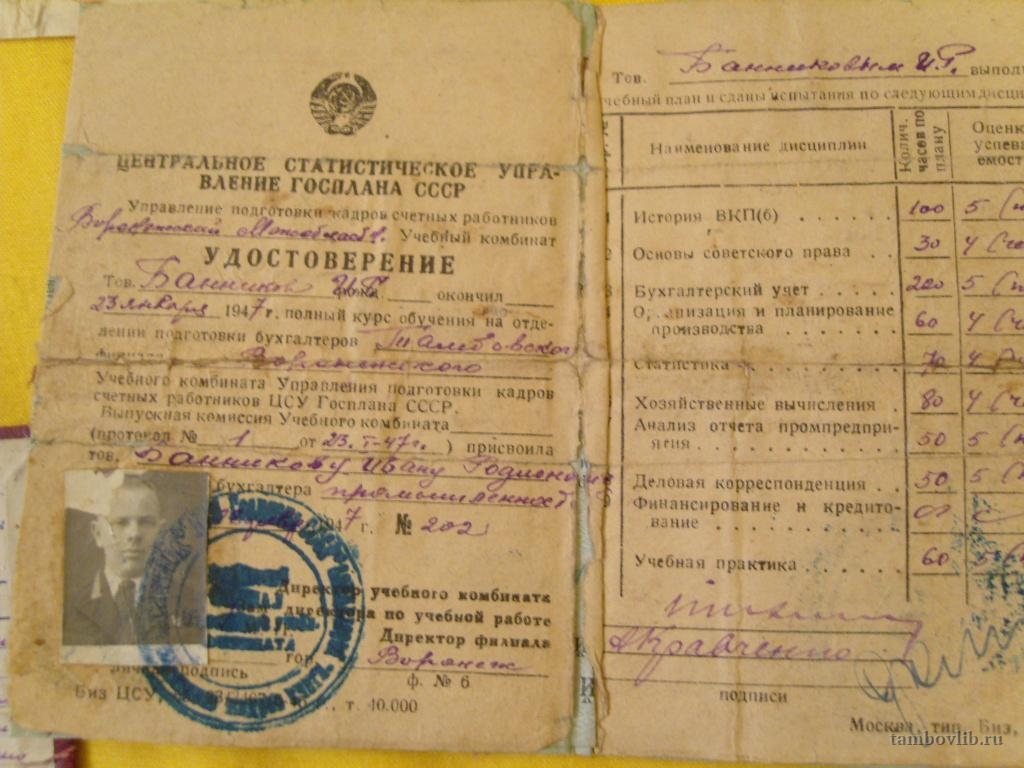 ЦЕНТРАЛЬНОЕ СТАТИСТИЧЕСКОЕ УПРА-
ВЛЕНИЕ ГОСПЛАНА СССР
Управление подготовки кадров счетных работников
Учебный комбинат
УДОСТОВЕРЕНИЕ
Тов. Банников И.Р. окончил
23 января 1947 г. полный курс обучения на отде-
лении подготовки бухгалтеров Тамбовского
филиала Воронежского
Учебного комбината Управления подготовки кадров
счетных работников ЦСУ Госплана СССР.
Выпускная комиссия Учебного комбината
(протокол № 1 от 23.I-47 г.) присвоила
тов. Банникову Ивану
бухгалтера промышленност.
1947 г. № 202
Директор учебного комбината
Зам. директора по учебной работе
Директор филиала
гор. Воронеж
подпись
ф. № 6
Биз ЦСУ, т. 40.000
Тов. Банниковым И.Р. выполн
чебный план и сданы испытания по следующим дисци
Наименование дисциплин
Колич. часов по плану
Оценка
успева
емост
1 История ВКП(б) 100 5
2 Основы советского права 30 4
3 Бухгалтерский учет 200 5
Организация и планирование
производства 60 4
Статистика 70 4
Хозяйственные вычисления 80 4
Анализ отчета промпредпри-
ятия 50 5
Деловая корреспонденция 50 5
Финансирование и кредито-
вание
Учебная практика 60
Кравченко
подписи
Москва, тип. Биз,
tambovlib.ru